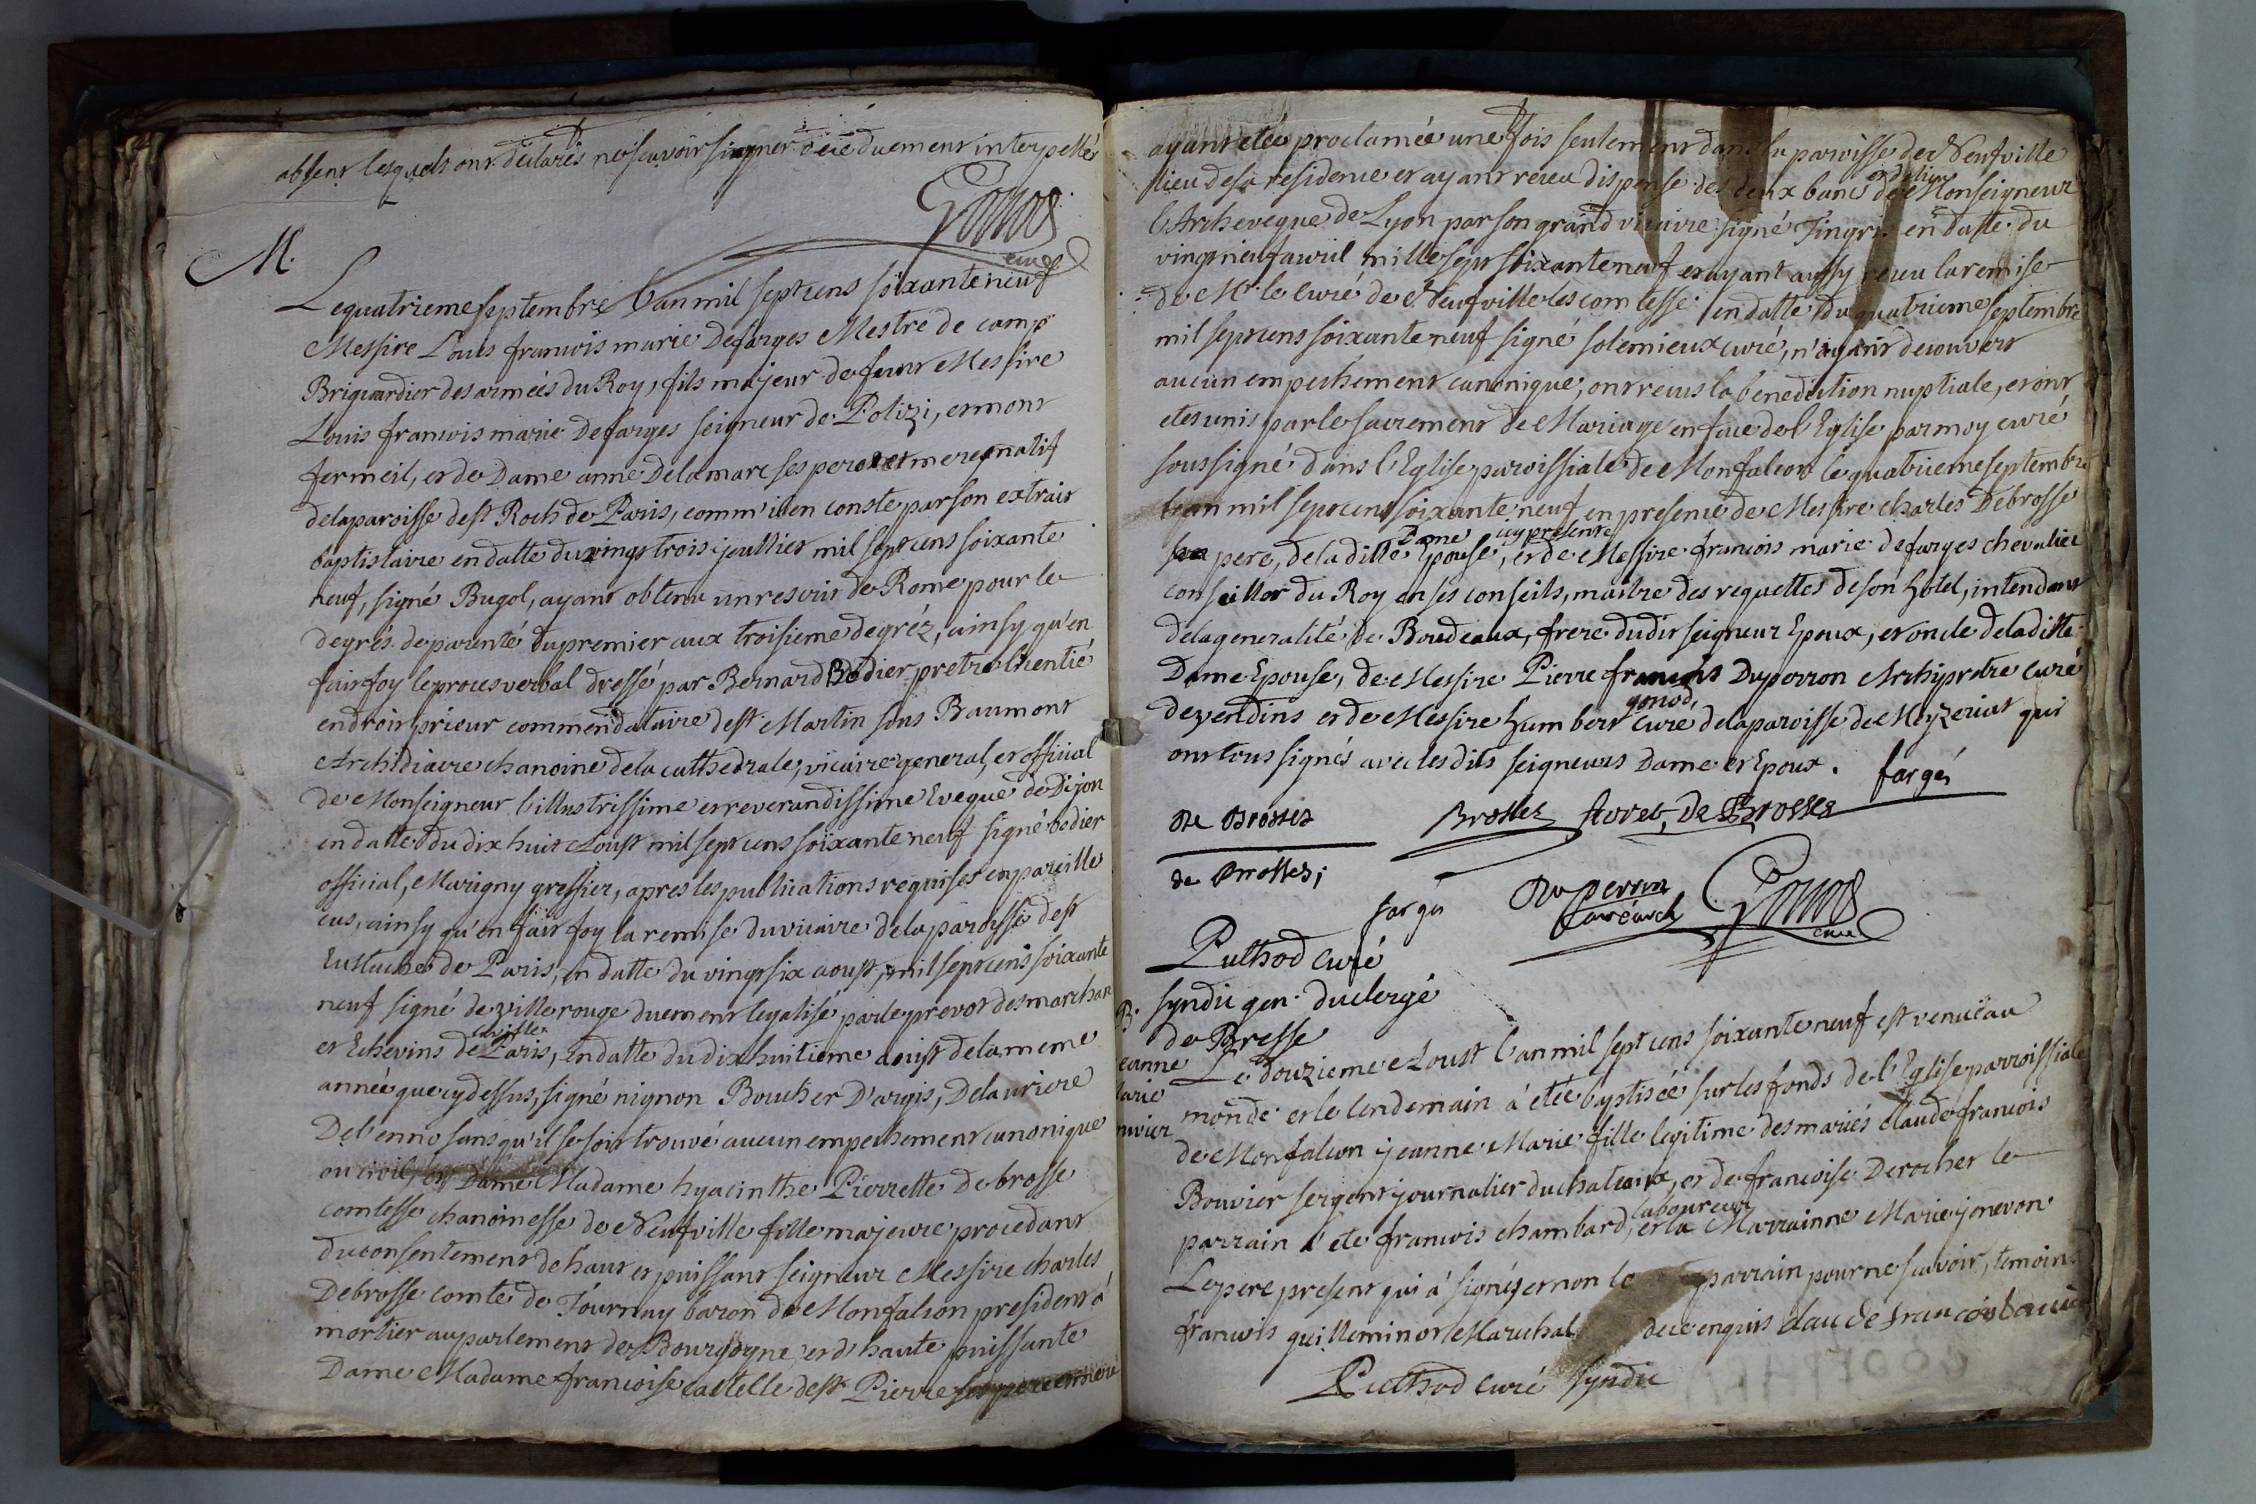 absent lesquels ont déclarés ne scavoir signer de ce duement interpellés
Gonod
curé
M.
Le quatrieme septembre l'an mil sept cens soixante neuf
Messire Louis francois marie Defarges Mestre de camp
Briguardier des armées du Roy, fils majeur de feu Messire
Louis francois marie Defarges seigneur de Polizi, et mont
fermeil, et de Dame anne Delamarc ses pere et mere natif
de la paroisse de st Roch de Paris, comm'il en conste par son extrait
baptistaire en datte du vingt trois juillier mil sept cens soixante
neuf, signé Bugol, ayant obtenu un rescrit de Rome pour le
degrés de parenté du premier aux troisieme degréz, ainsy qu'en
fait foy le proces verbal dressé par Bernard Bodier pretre licentié
en droit prieur commendataire de st Martin sous Baumont
Archidiacre chanoine de la cathedrale, vicaire general, et official
de Monseigneur l'illustrissime et reverendissime Eveque de Dijon
en datte du dix huit Aoust mil sept cens soixante neuf signé bodier
official, Marigny greffier, apres les publications requises en pareille
cas, ainsy qu'en fait foy la remise du vicaire de la paroisse de st
Eustache de Paris, en datte du vingt six aoust, mil sept cens soixante
neuf signé de villerouge duement legalisé par le prevot des marchan
et Echevins de ville Paris, en datte du dix huitieme aoust de la meme
année que cy dessus, signé nignon Boucher D'argis, Delauriere
Del'enno sans qu'il se soit trouvé aucun empechement canonique
ou civil, et Dame Madame hyacinthe Pierrette De brosse
comtesse chanoinesse de Neufville fille majeure procedant
du consentement de haut et puissant seigneur Messire charles
Debrosse comte de Tournay baron de Monfalcon president à
mortier au parlement de Bourgogne, et d'haute puissante
Dame Madame francoise castelle de st Pierre ses pere et mere
ayant etée proclamée une fois seulement dans la paroisse de Neufville
lieu de sa residence et ayant receu dispense des deux bancs de Monseigneur
l'Archeveque de Lyon par son grand vicaire signé Tingri en datte du
vingt neuf avril mille sept soixante neuf et ayant aussy receu la remise
de Mr le Curé de Neufville les comtesse en datte du quatrieme septembre
mil sept cens soixante neuf signé solemieux curé, n'ayant decouvert
aucun empechement canonique, ont recus la benediction nuptiale, et ont
etes unis par le sacrement de Mariage en face de l'Eglise par moy curé
soussigné dans l'Eglise paroissiale de Monfalcon le quatrieme septembre
l'an mil sept cens soixante neuf en presence de Messire charles Debrosse
pere, de la ditte Dame Epouse, icy presente, et de Messire francois marie defarges chevalier
conseiller du Roy en ses conseils, maitre des requettes de son hotel, intendant
de la generalité de Bordeaux, frere du dit seigneur Epoux, et oncle de la ditte
Dame Epouse, de Messire Pierre francois Duperron Archiprêtre curé
de vendins et de Messire humbert gonod, curé de la paroisse de Meyzeriat qui
ont tous signés avec les dits seigneurs Dame et Epoux.
fargés
De Brosses
Brosses
de Brosses
de Brosses;
fargés
Duperron
curé arch
Gonod
curé
Puthod curé
syndic gen. du clergé
de Bresse
B.
eanne
arie
uvier
Le douzieme Aoust l'an mil sept cens soixante neuf est venüe au
monde et le lendemain à étée baptisée sur les fonds de l'Eglise parroissiale
de Monfalcon jeanne Marie fille legitime des mariés Claude francois
Bouvier sergent journalier du chateaux, et de francoise Derocher le
parrain à ete francois chambard, laboureur et la Marrainne Marie jonevon
Le pere present qui à signé, et non le parrain pour ne scavoir, temoins
francois guilleminot Marechal de ce enquis claude francois bouvie
Puthod curé syndic